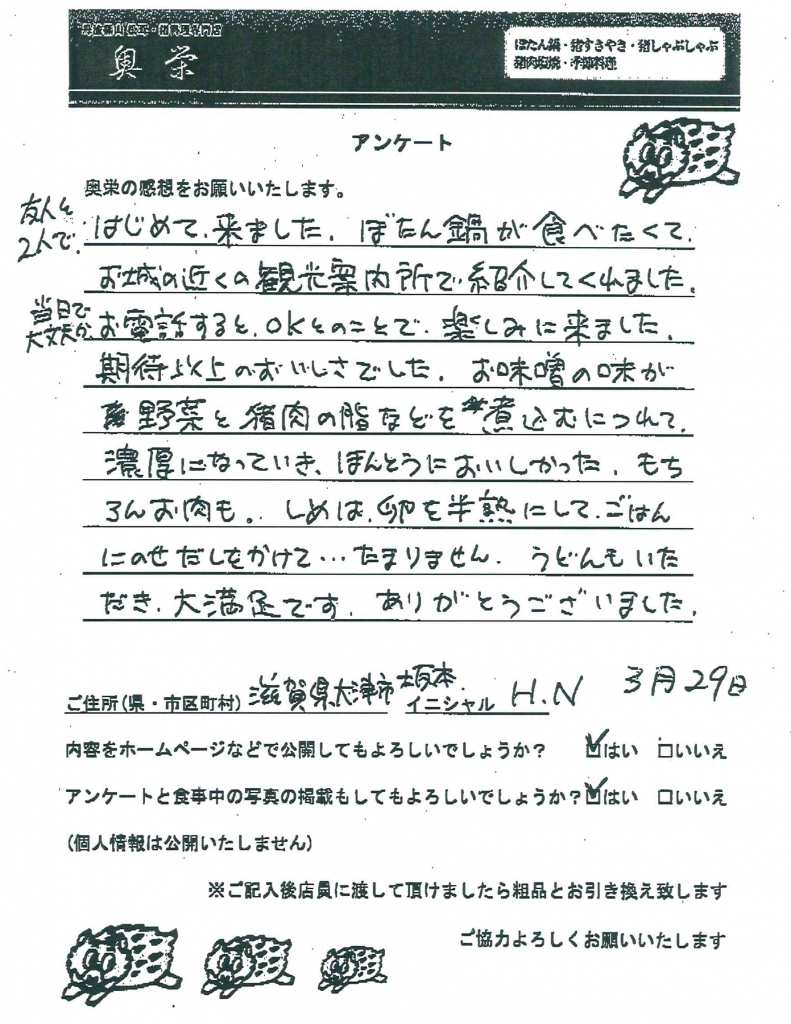 丹波篠山 松茸・猪料理専門店
奥栄
ぼたん鍋・猪すきやき・猪しゃぶしゃぶ
猪肉塩焼・季節料理
アンケート
奥栄の感想をお願いいたします。
友人と
2人で、
はじめて、来ました。ぼたん鍋が食べたくて、
お城の近くの観光案内所で紹介してくれました。
当日で
大丈夫か、
お電話すると、OKとのことで、楽しみに来ました。
期待以上のおいしさでした。お味噌の味が
野菜と猪肉の脂などを煮込むにつれて、
濃厚になっていき、ほんとうにおいしかった。もち
ろんお肉も。しめは、卵を半熟にして、ごはん
にのせだしをかけて…たまりません。うどんもいた
だき、大満足です。ありがとうございました。
ご住所(県・市区町村) 滋賀県大津市坂本 イニシャル H.N 3月29日
内容をホームページなどで公開してもよろしいでしょうか? ☑はい □いいえ
アンケートと食事中の写真の掲載もしてもよろしいでしょうか?☑はい □いいえ
(個人情報は公開いたしません)
※ご記入後店員に渡して頂けましたら粗品とお引き換え致します
ご協力よろしくお願いいたします